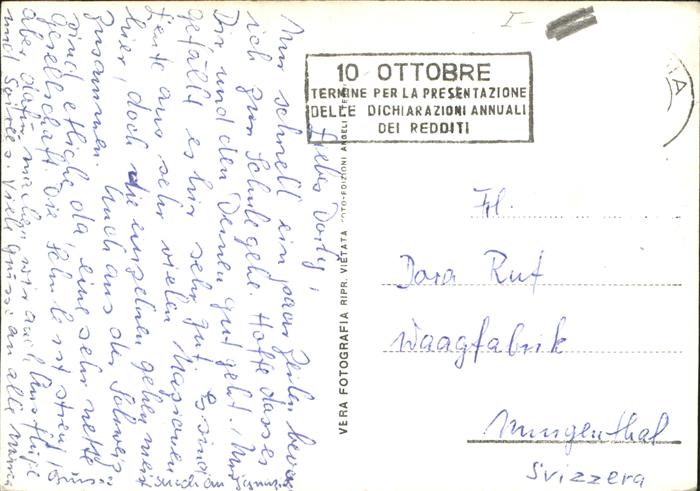 I-
10 OTTOBRE
TERMINE PER LA PRESENTAZIONE
DELLE DICHIARAZIONI ANNUALI
DEI REDDITI
VERA FOTOGRAFIA RIPR. VIETATA
Frl.
Dora Ruf
Waagfabrik
Murgenthal
Svizzera
Liebes Dorly,
Nur schnell ein paar Zeilen bevor
ich zur Schule gehe. Hoffe dass es
Dir und den Deinen gut geht. Mir
gefällt es hier sehr gut. Es sind
Leute aus sehr vielen Nationen
hier, doch die einzelnen gehen meist
zusammen. Auch aus der Schweiz
sind etliche da, eine sehr nette
Gesellschaft. Die Schule ist streng,
aber dafür machen wir auch Ausflüge
und Soirées. Viele Grüsse an alle